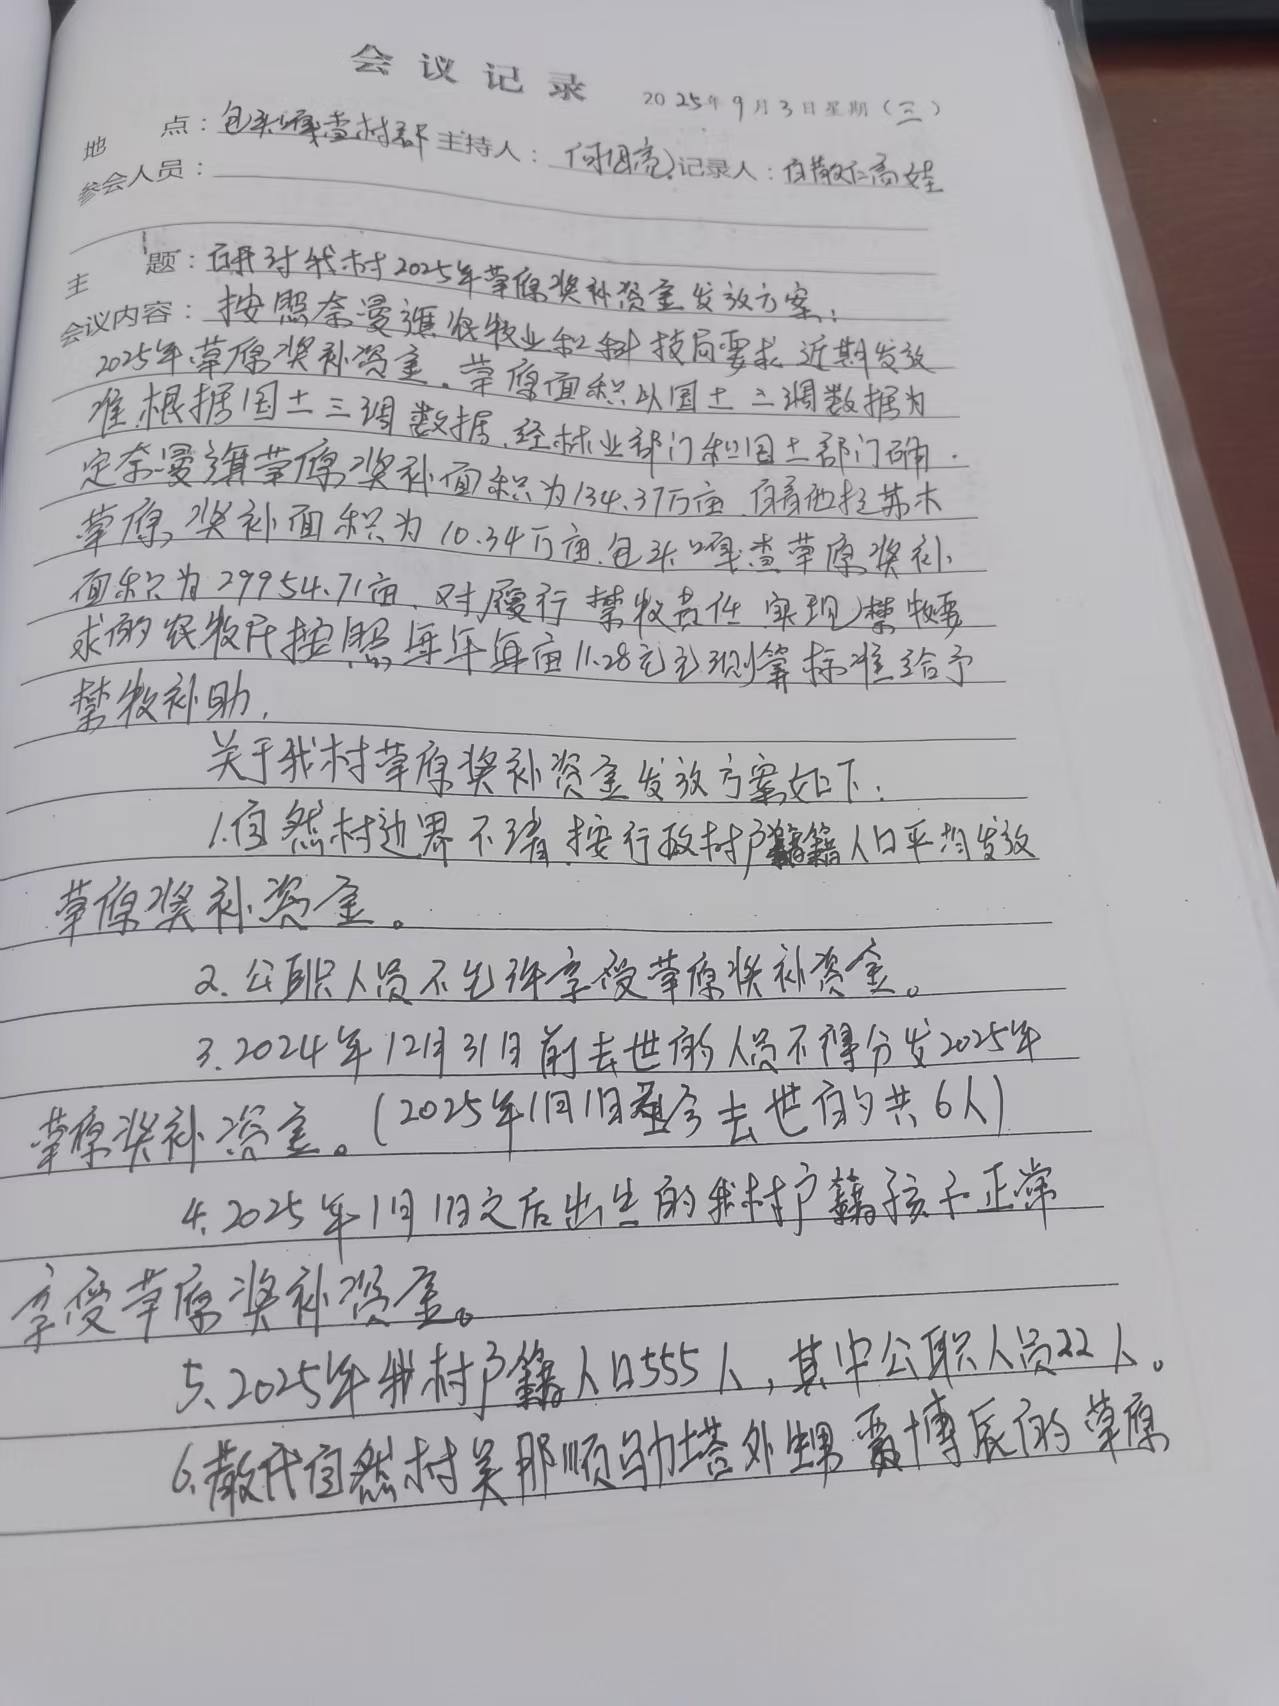 会议记录
2025年9月3日星期(三)
地 点：包头嘎查村部 主持人： 记录人：
参会人员：
主 题：研讨我村2025年草原奖补资金发放方案：
会议内容：按照奈曼旗农牧业和科技局要求 近期发放
2025年草原奖补资金，草原面积以国土三调数据为
准，根据国土三调数据，经林业部门和国土部门确
定奈曼旗草原奖补面积为134.37万亩，白音他拉苏木
草原奖补面积为10.34万亩，包头嘎查草原奖补
面积为29954.71亩，对履行禁牧责任 实现禁牧要
求的农牧户按照每年每亩11.28元测算标准给予
禁牧补助，
关于我村草原奖补资金发放方案如下：
1.自然村边界不清，按行政村户籍人口平均发放
草原奖补资金。
2.公职人员不允许享受草原奖补资金。
3.2024年12月31日前去世的人员不得分发2025年
草原奖补资金。(2025年1月1日至今去世的共6人)
4.2025年1月1日之后出生的我村户籍孩子正常
享受草原奖补资金。
5.2025年我村户籍人口555人，其中公职人员22人。
6.散代自然村吴那顺乌力塔外甥 博辰的草原